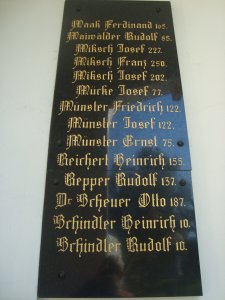 Maak Ferdinand 165.
Maiwälder Rudolf 85.
Miksch Josef 227.
Miksch Franz 250.
Miksch Josef 202.
Mürke Josef 77.
Münster Friedrich 122.
Münster Josef 122.
Münster Ernst 75.
Reichert Heinrich 155.
Repper Rudolf 137.
Dr Scheuer Otto 187.
Schindler Heinrich 10.
Schindler Rudolf 10.